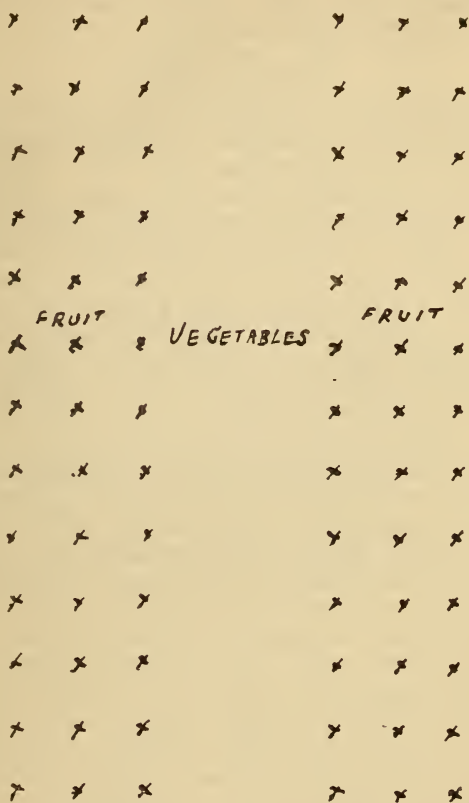 FRUIT VEGETABLES FRUIT